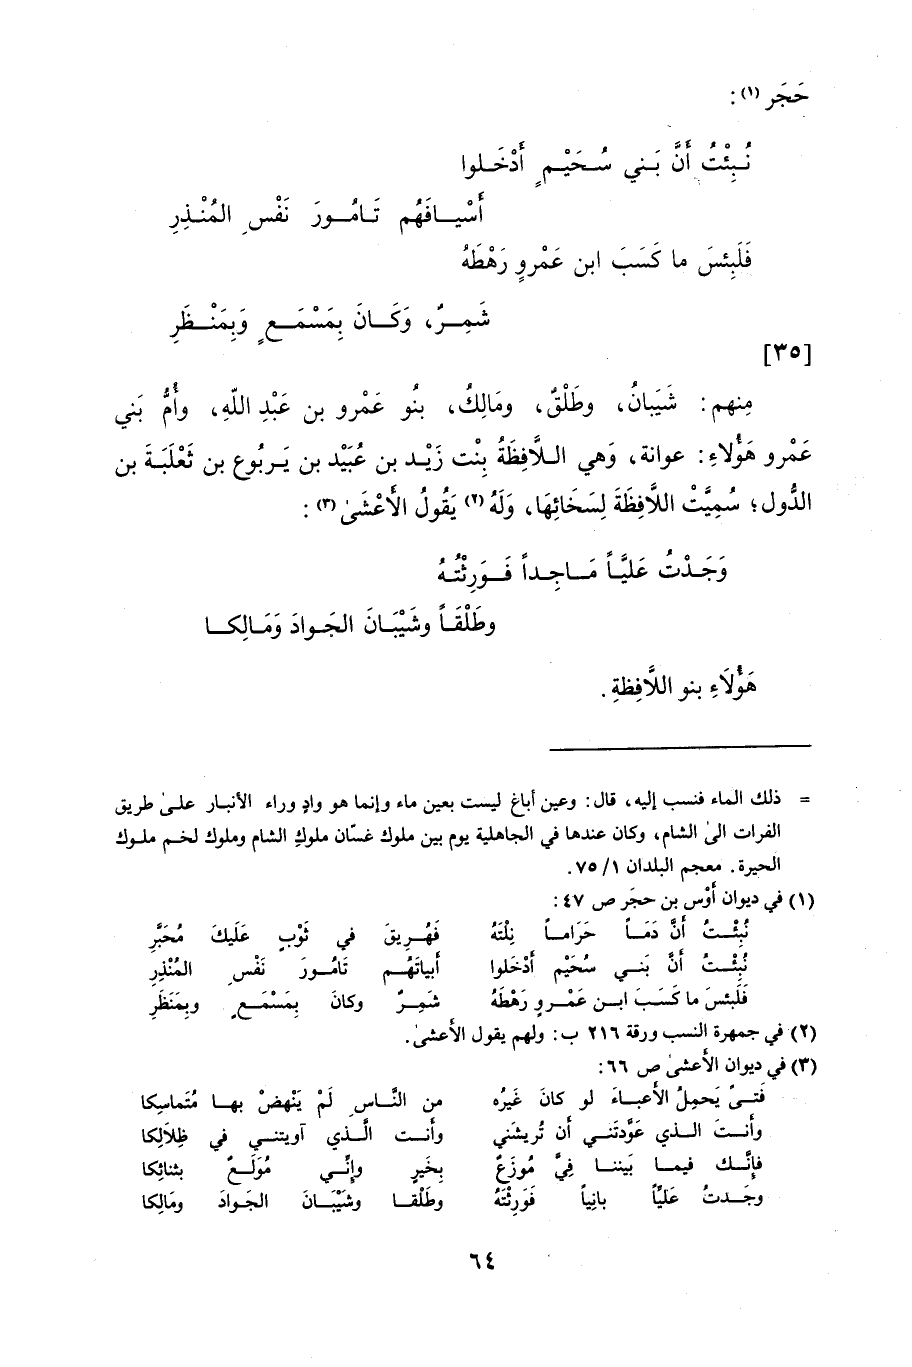 حَجَر (١) :
نُبِئْتُ أَنَّ بَني سُحَيْمٍ أَدْخَلوا
أَسْيافَهُم تَامُورَ نَفْسِ المُنْذِرِ
فَلَبِئسَ ما كَسَبَ ابن عَمْرٍو رَهْطَهُ
شَمِرٌ، وَكَانَ بِمَسْمَعٍ وَبِمَنْظَرِ
[٣٥]
مِنهم : شَيَبانُ، وطَلْقٌ، ومَالِكُ، بنُو عَمْرو بن عَبْدِ اللّهِ، وأُمُّ بَني
عَمْرو هَؤُلاءِ : عوانة، وَهي اللَّافِظَةُ بِنْت زَيْد بن عُبَيْد بن يَربُوع بن ثَعْلَبَةَ بن
الدُّول؛ سُمِيَّتْ اللَّافِظَةَ لِسَخَائِهَا، وَلَهُ (٢) يَقُولُ الأَعْشَىٰ (٣) :
وَجَدْتُ عَليَّاً مَاجِداً فَوَرِثْتُهُ
وطَلْقَاً وشَيْبَانَ الجَوادَ وَمَالِكا
هَؤُلَاءِ بنو اللَّافِظَةِ .
= ذلك الماء فنسب إليه، قال : وعين أباغ ليست بعين ماء وإنما هو وادٍ وراء الأنبار علىٰ طريق
الفرات الىٰ الشام، وكان عندها في الجاهلية يوم بين ملوك غسّان ملوكِ الشام وملوك لخم ملوك
الحيرة. معجم البلدان ١ /٧٥.
(١) في ديوان أوْس بن حجَر ص ٤٧ :
نُبِئْتُ أنَّ دَمَاً حَرَاماً نِلْتَهُ فَهُرِيقَ في ثَوْبٍ عَلَيكَ مُحَبَّرِ
نُبِئْتُ أنَّ بَني سُحَيْم أدْخَلوا أبياتَهُم تَامُورَ نَفْسِ المُنْذِرِ
فَلَبئسَ ما كَسَبَ ابن عَمْرٍو رَهْطَهُ شَمِرٌ وكانَ بِمَسْمَعٍ وبِمَنَظَرِ
(٢) في جمهرة النسب ورقة ٢١٦ ب : ولهم يقول الأعشىٰ.
(٣) في ديوان الأعشىٰ ص ٦٦ :
فَتىً يَحمِلُ الأعباءَ لو كانَ غَيرُه من النَّاسِ لَمْ يَنْهضْ بها مُتَماسِكا
وأنتَ الذي عَوَّدتَني أن تُريشَني وأنت الَّذي آويتني في ظِلاَلِكا
فإنَّك فيما بَيننا فِيَّ مُوزَعٌ بِخَيرٍ وإنَّي مُولَعٌ بثنائِكا
وجَدتُ عَليَّاً بانِياً فَوَرِثْتَهُ وطَلْقا وشَيْبَانَ الجَوادَ ومَالِكا
٦٤